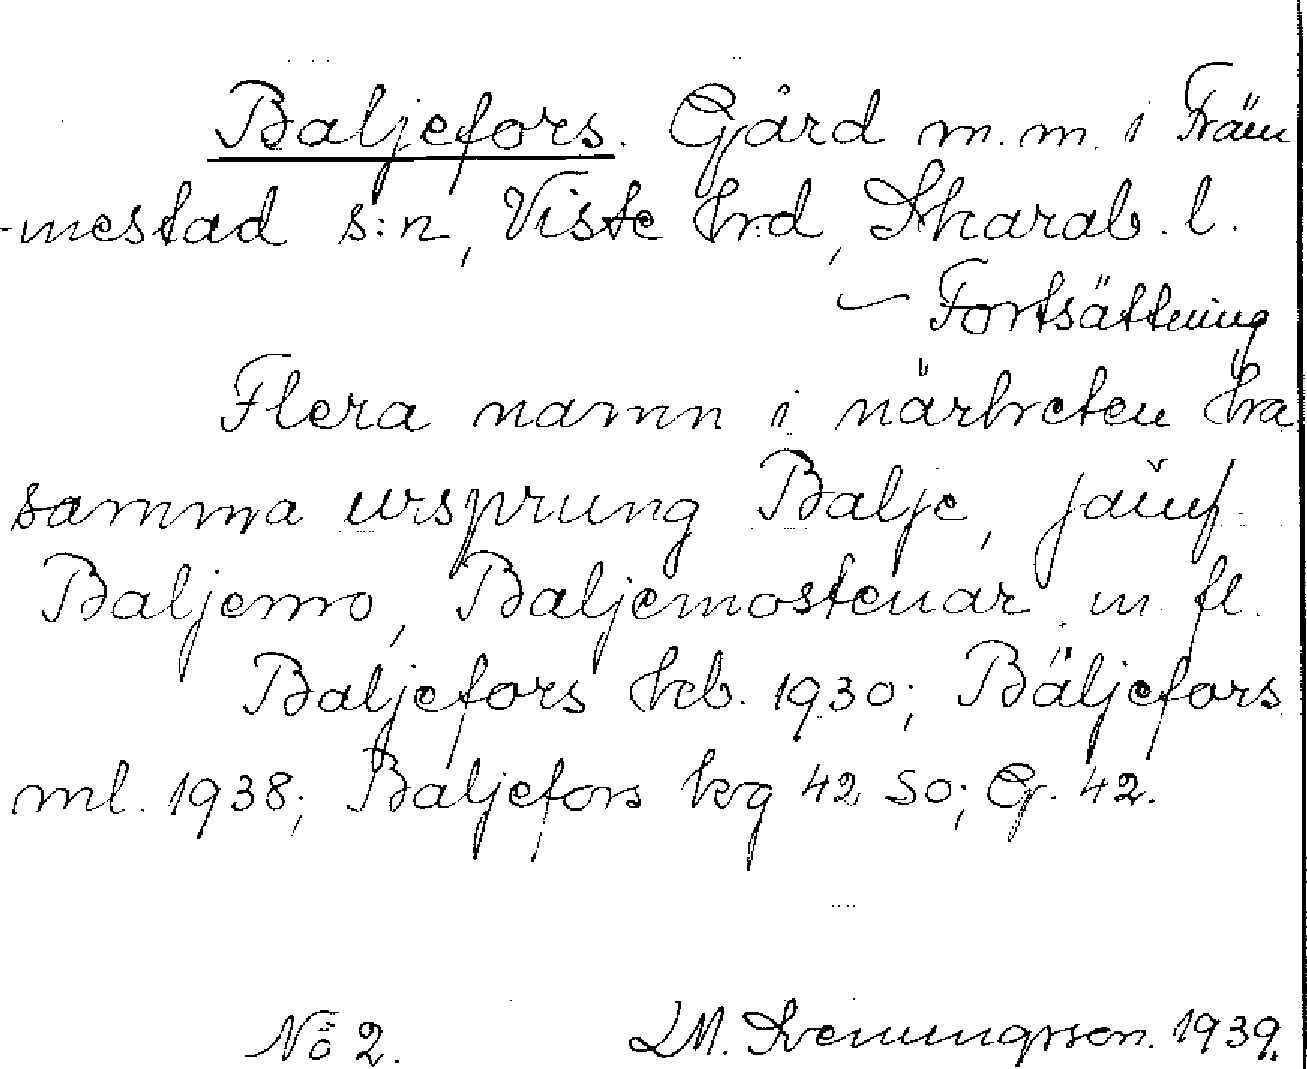 Baljefors. Gård m.m. i Främ
-mestad s:n, Viste hrd, Skarab. l.
— Fortsättning
Flera namn i närheten ha
samma ursprung Balje, jämf.
Baljemo, Baljemostenar m fl.
Baljefors kb. 1930; Bäljefors
ml. 1938; Baljefors krg 42 SO; G. 42.
No 2. LM. Svenungsson. 1939.